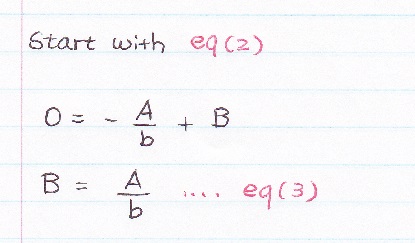 Start with eq(2)
0 = - A/b + B
B = A/b .... eq(3)